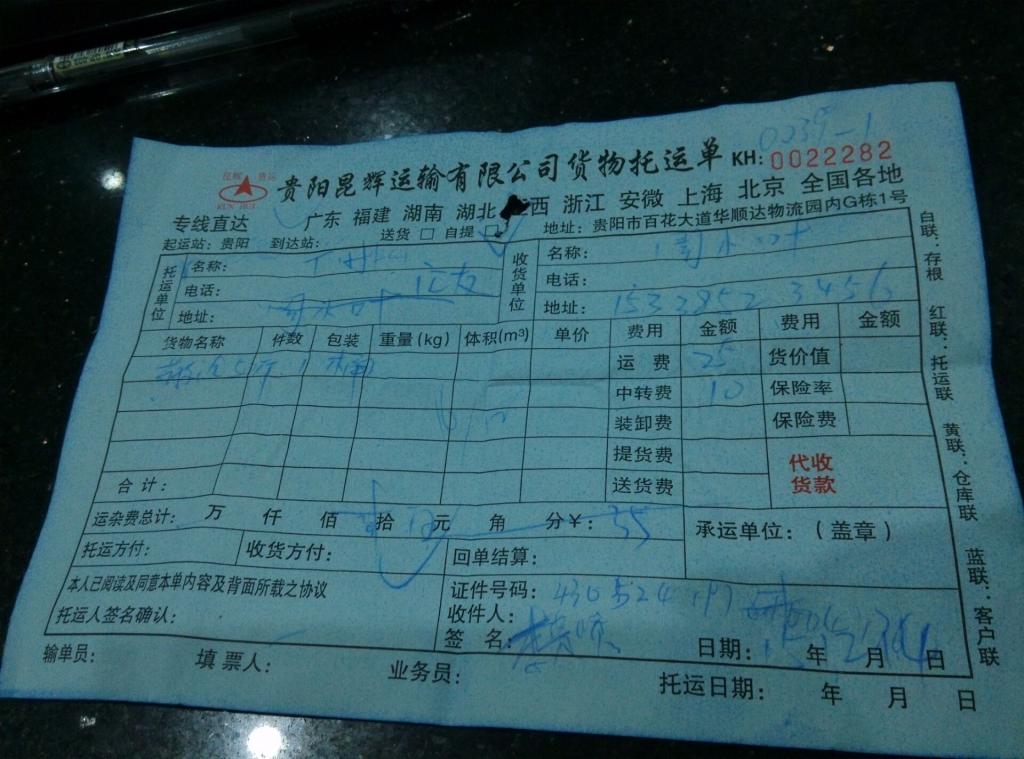 0039-1
贵阳昆辉运输有限公司货物托运单 KH: 0022282
昆辉 货运
KUN HUI
专线直达 广东 福建 湖南 湖北 西 浙江 安微 上海 北京 全国各地
起运站: 贵阳 到达站: 送货 □ 自提 □ 地址: 贵阳市百花大道华顺达物流园内G栋1号
托运单位 名称: 收货单位 名称:
电话: 电话:
地址: 地址: 15338523456
货物名称 件数 包装 重量(kg) 体积(m³) 单价 费用 金额 费用 金额
1 桶 运费 25 货价值
中转费 10 保险率
装卸费 保险费
提货费 代收货款
合计: 送货费
运杂费总计: 万 仟 佰 拾 元 角 分¥: 35 承运单位: (盖章)
托运方付: 收货方付: 回单结算:
本人已阅读及同意本单内容及背面所载之协议 证件号码: 430524197
托运人签名确认: 收件人:
签名: 日期: 年 月 日
输单员: 填票人: 业务员: 托运日期: 年 月 日
白联:存根 红联:托运联 黄联:仓库联 蓝联:客户联